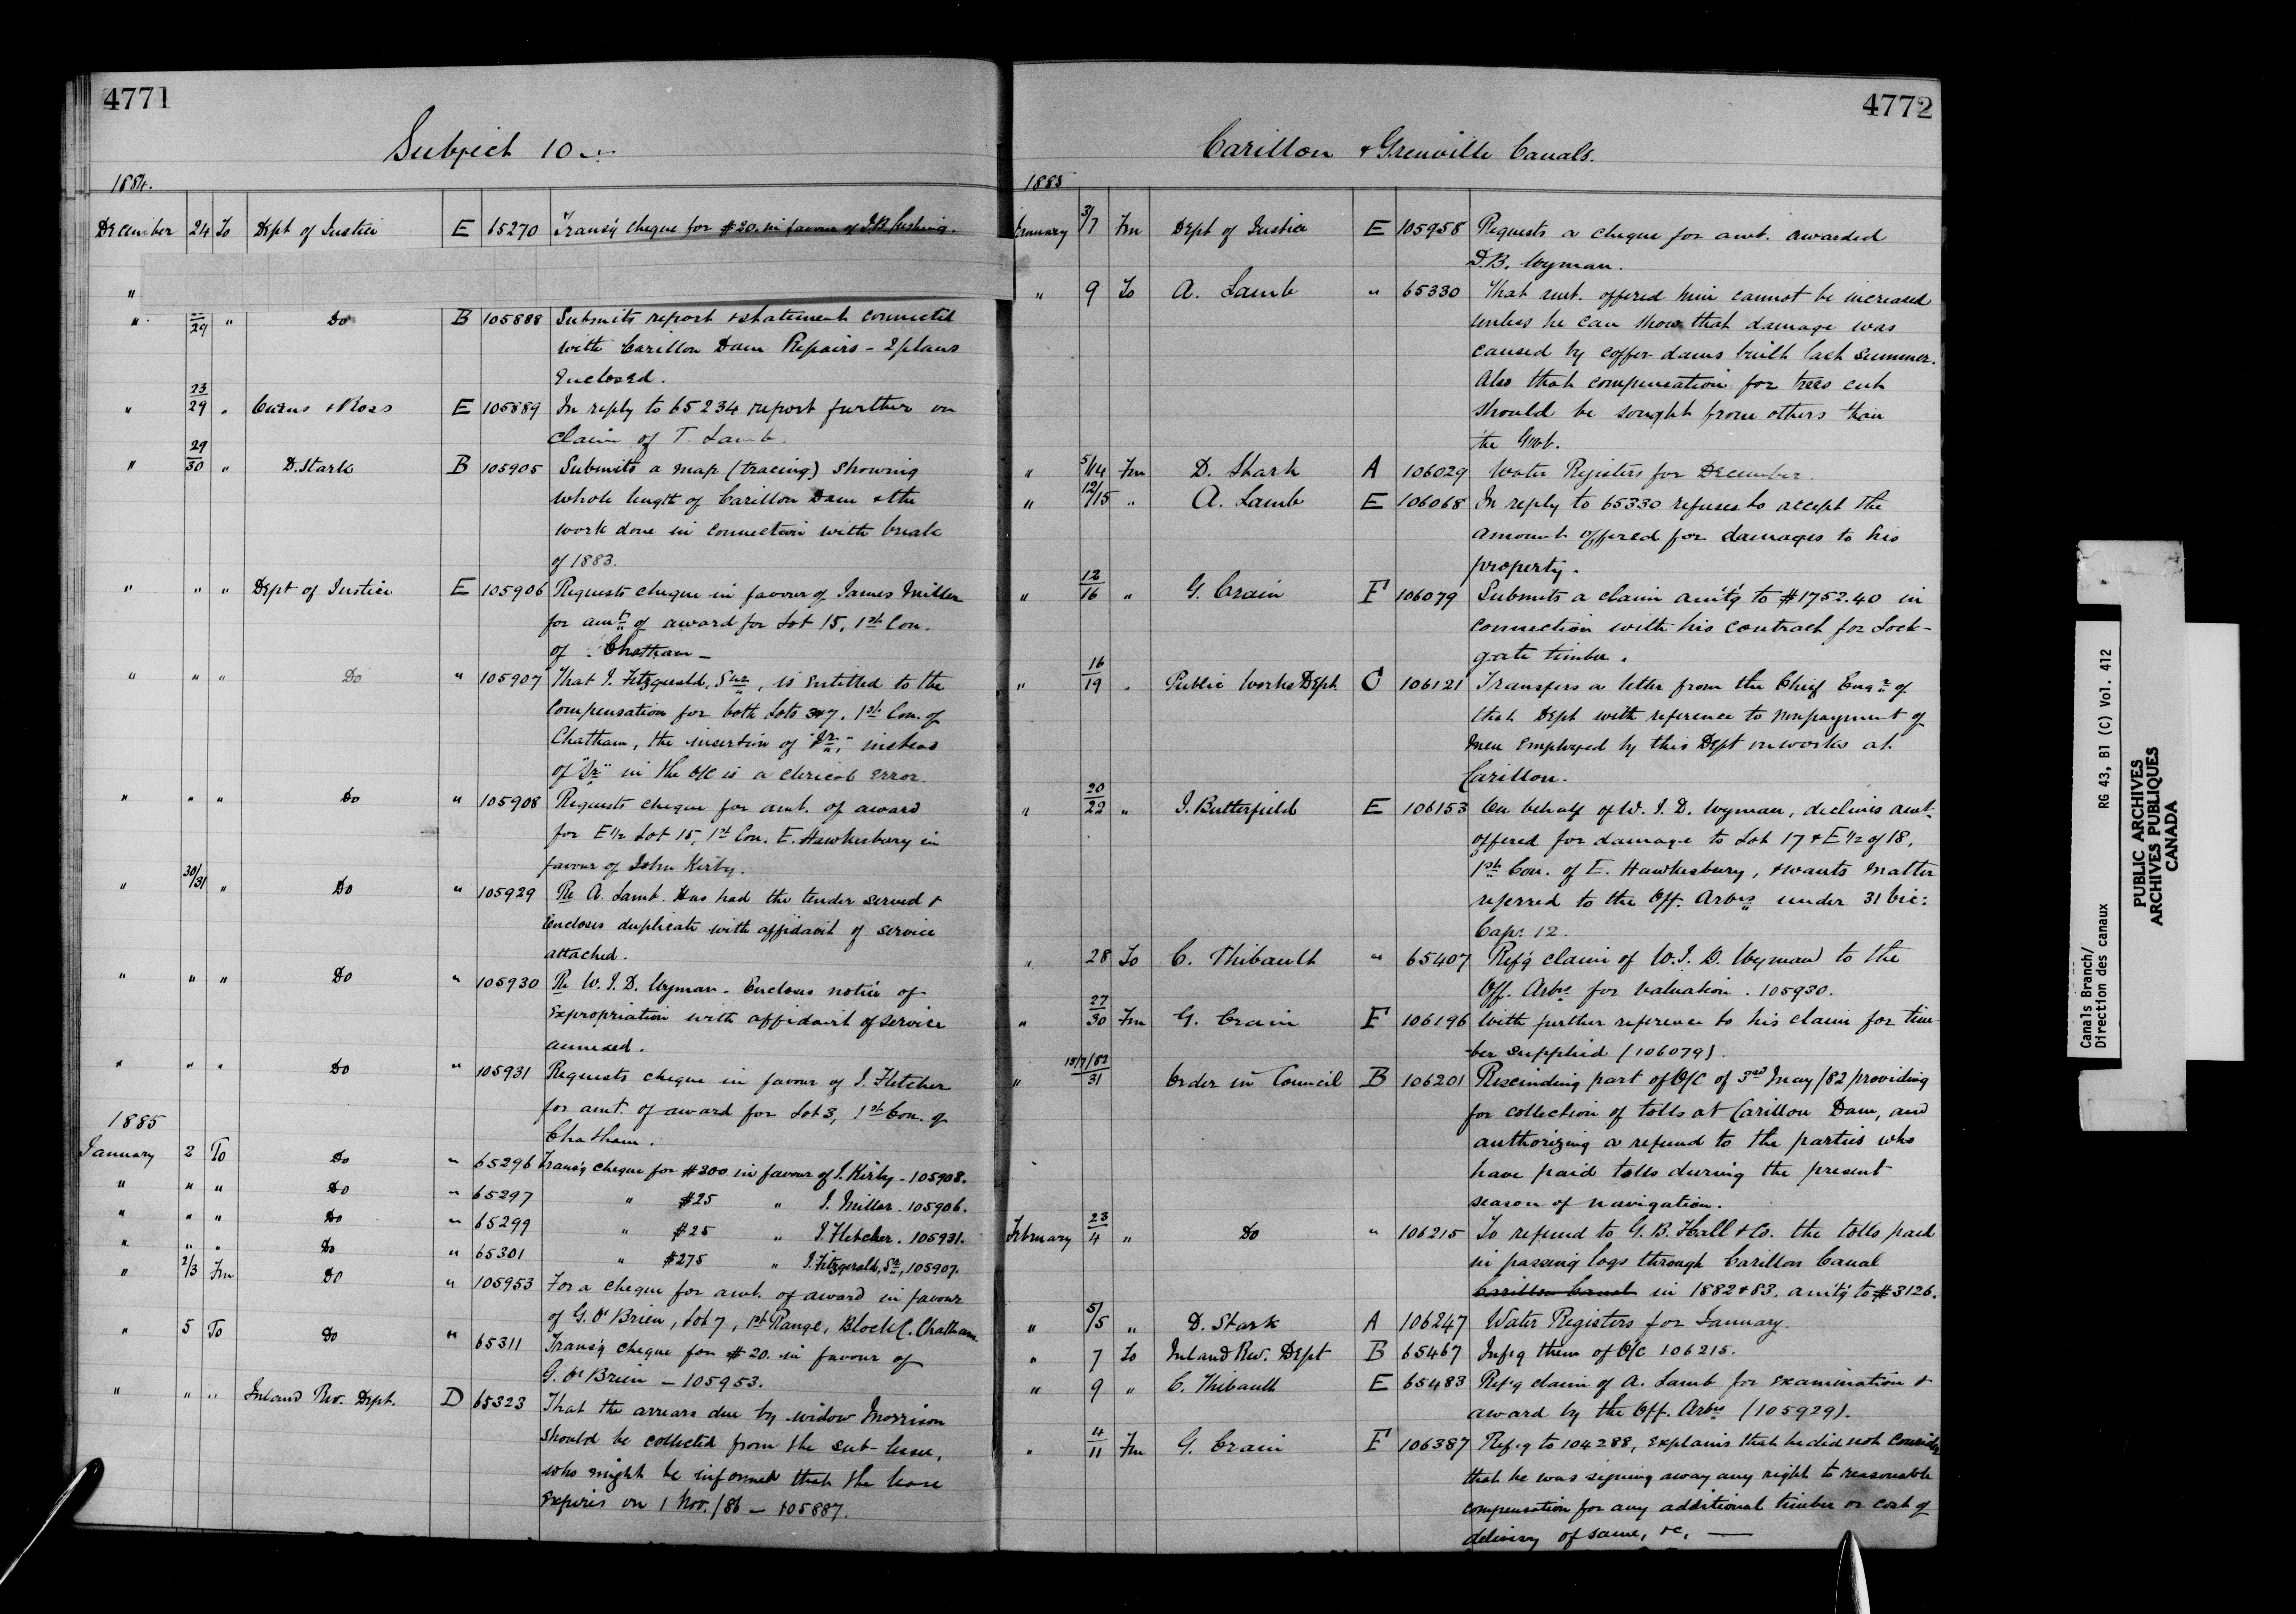 4771
Subject 10
1884.
December 24 To Dept of Justice E 65270 Transg cheque for $20. in favour of J.B. Cushing.
"
" 29 " Do B 105888 Submits report & statement connected
with Carillon Dam Repairs - 2 plans
Enclosed.
" 23/29 " Cairns & Ross E 105889 In reply to 65234 report further on
claim of T. Lamb.
" 29/30 " D. Stark B 105905 Submits a map (tracing) showing
whole length of Carillon Dam & the
work done in connection with break
of 1883.
" " " Dept of Justice E 105906 Requests cheque in favour of James Miller
for amt of award for Lot 15, 1st Con.
of Chatham -
" " " Do " 105907 That J. Fitzgerald, Senr, is entitled to the
compensation for both Lots 3&7, 1st Con. of
Chatham, the insertion of "Jr," instead
of "Sr" in the O/C is a clerical error.
" " " Do " 105908 Requests cheque for amt. of award
for E 1/2 Lot 15, 1st Con. E. Hawkesbury in
favour of John Kirby.
" 30/31 " Do " 105929 Re A. Lamb. Has had the tender served &
encloses duplicate with affidavit of service
attached.
" " " Do " 105930 Re W. J. D. Wyman - Encloses notice of
expropriation with affidavit of service
annexed.
" " " Do " 105931 Requests cheque in favour of J. Fletcher
for amt. of award for Lot 3, 1st Con. of
Chatham.
1885
January 2 To Do " 65296 Transg cheque for $200 in favour of J. Kirby - 105908.
" " " Do " 65297 " $25 " J. Miller. 105906.
" " " Do " 65299 " $25 " J. Fletcher. 105931.
" " " Do " 65301 " $275 " J. Fitzgerald, Sr, 105907.
" 2/3 Fm Do " 105953 For a cheque for amt. of award in favour
of G. O'Brien, Lot 7, 1st Range, Block C. Chatham
" 5 To Do " 65311 Transg cheque for $20. in favour of
G. O'Brien - 105953.
" " " Inland Rev. Dept. D 65323 That the arrears due by widow Morrison
should be collected from the sub-lessee,
who might be informed that the lease
expires on 1 Nov. /86 - 105887.
4772
Carillon & Grenville Canals.
1885
January 3/7 Fm Dept of Justice E 105958 Requests a cheque for amt. awarded
D.B. Wyman.
" 9 To A. Lamb " 65330 That amt. offered him cannot be increased
unless he can show that damage was
caused by coffer dams built last summer.
Also that compensation for trees cut
should be sought from others than
the Govt.
" 5/14 Fm D. Stark A 106029 Water Registers for December.
" 12/15 " A. Lamb E 106068 In reply to 65330 refuses to accept the
amount offered for damages to his
property.
" 12/16 " G. Crain F 106079 Submits a claim amtg to $1752.40 in
connection with his contract for Lock-
gate timber.
" 16/19 " Public Works Dept. C 106121 Transfers a letter from the Chief Engr of
that Dept with reference to nonpayment of
men employed by this Dept on works at
Carillon.
" 20/22 " J. Butterfield E 106153 On behalf of W. J. D. Wyman, declines amt
offered for damage to Lot 17 & E 1/2 of 18,
1st Con. of E. Hawkesbury, & wants matter
referred to the Off. Arbrs under 31 Vic:
Cap: 12.
" 28 To C. Thibault " 65407 Refg claim of W. J. D. Wyman to the
Off. Arbrs for valuation. 105930.
" 27/30 Fm G. Crain F 106196 With further reference to his claim for tim-
-ber supplied (106079).
" 15/7/82/31 Order in Council B 106201 Rescinding part of O/C of 3rd May/82 providing
for collection of tolls at Carillon Dam, and
authorizing a refund to the parties who
have paid tolls during the present
season of navigation.
February 23/4 " Do " 106215 To refund to G. B. Hall & Co. the tolls paid
in passing logs through Carillon Canal
Carillon Canal in 1882 & 83. amtg to $3126.
" 5/5 " D. Stark A 106247 Water Registers for January.
" 7 To Inland Rev. Dept B 65467 Infg them of O/C 106215.
" 9 " C. Thibault E 65483 Refg claim of A. Lamb for examination &
award by the Off. Arbrs (105929).
" 4/11 Fm G. Crain F 106387 Refg to 104288, explains that he did not consider
that he was signing away any right to reasonable
compensation for any additional timber or cost of
delivery of same, &c,
Canals Branch/
Direction des canaux RG 43, B1 (C) Vol. 412
PUBLIC ARCHIVES
ARCHIVES PUBLIQUES
CANADA